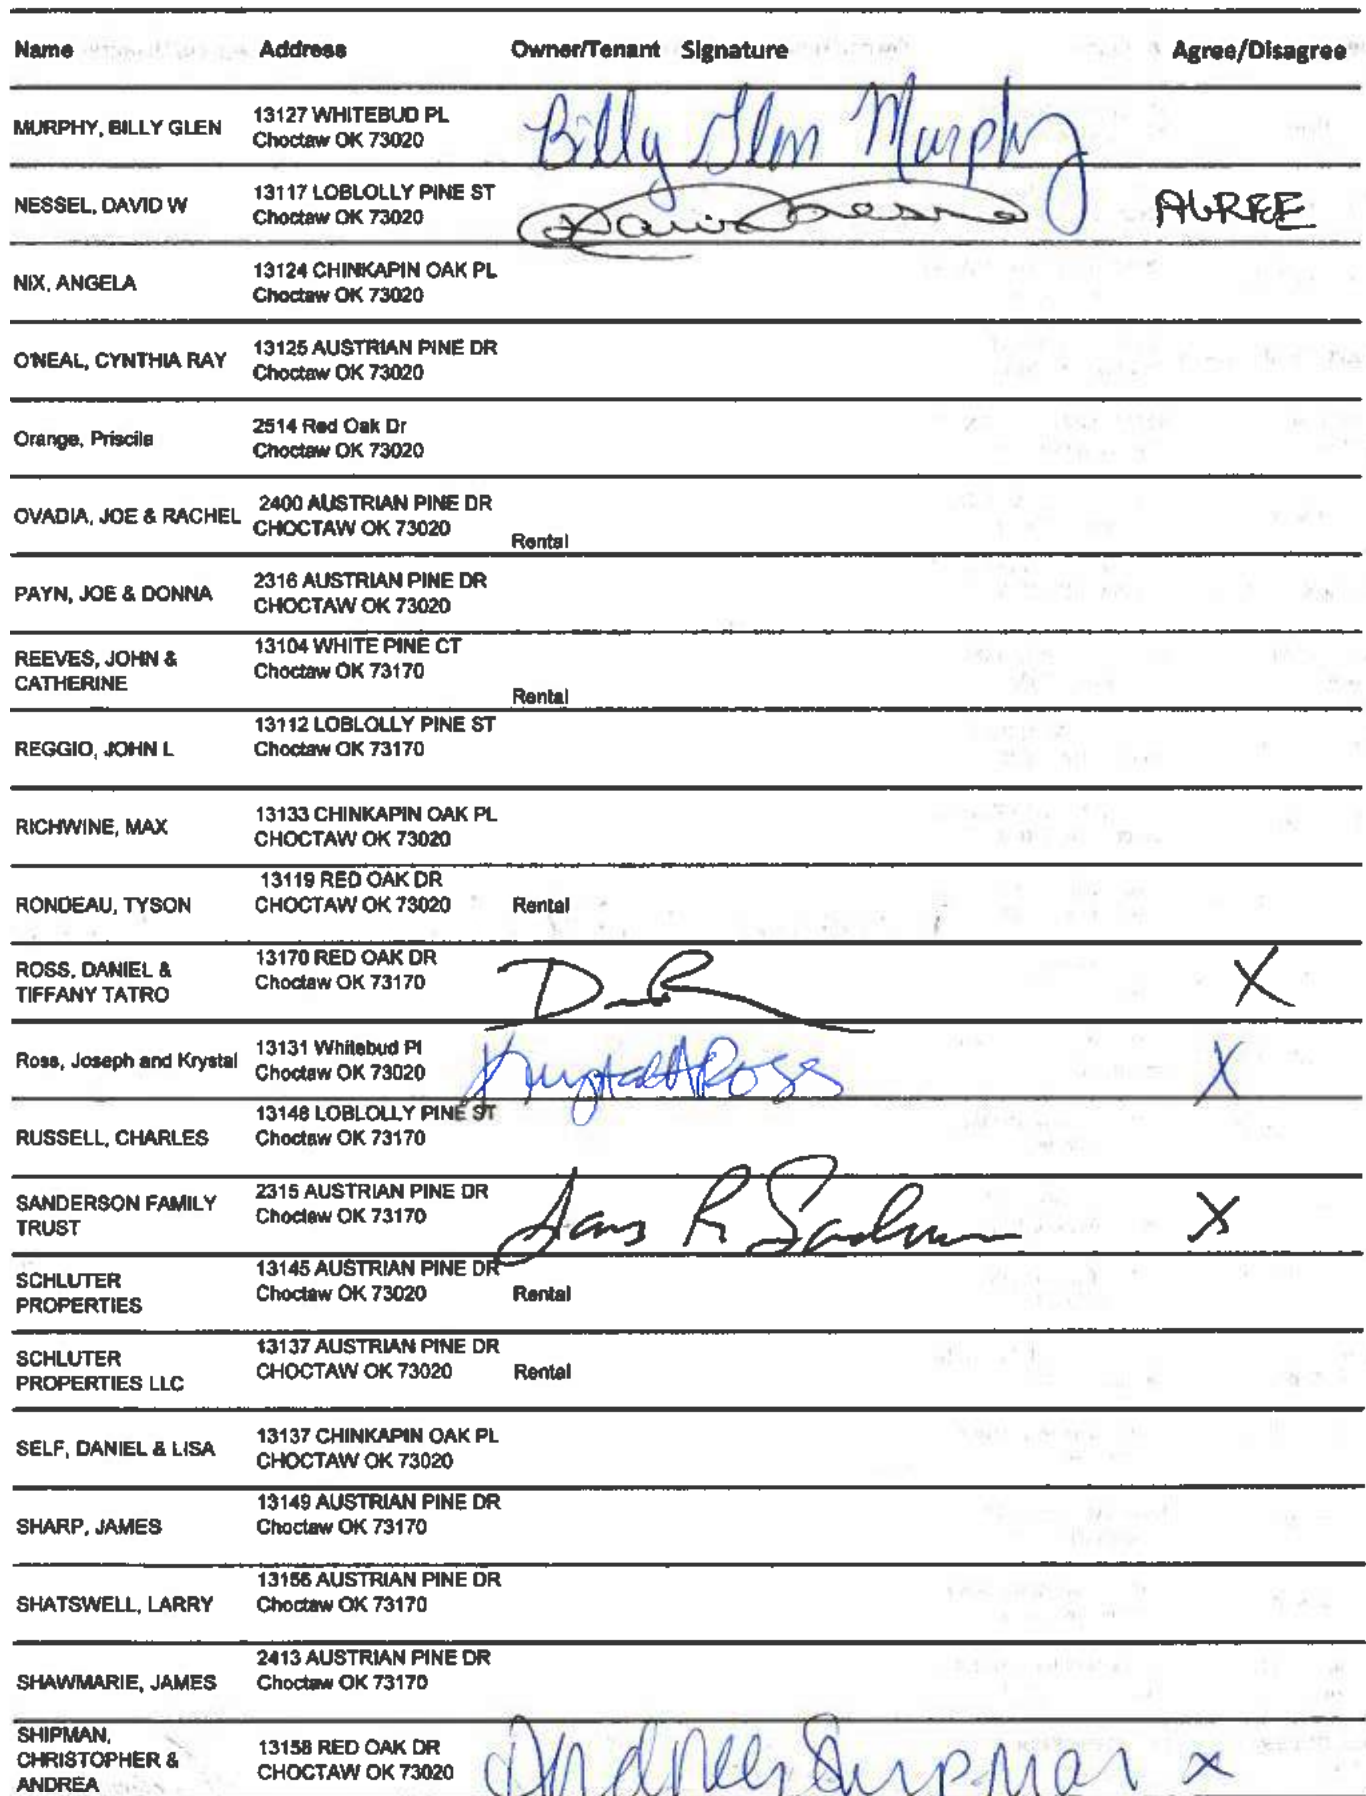 Name Address Owner/Tenant Signature Agree/Disagree
MURPHY, BILLY GLEN 13127 WHITEBUD PL
Choctaw OK 73020 Billy Glen Murphy
NESSEL, DAVID W 13117 LOBLOLLY PINE ST
Choctaw OK 73020 David Nessel AGREE
NIX, ANGELA 13124 CHINKAPIN OAK PL
Choctaw OK 73020
O'NEAL, CYNTHIA RAY 13125 AUSTRIAN PINE DR
Choctaw OK 73020
Orange, Priscila 2514 Red Oak Dr
Choctaw OK 73020
OVADIA, JOE & RACHEL 2400 AUSTRIAN PINE DR
CHOCTAW OK 73020 Rental
PAYN, JOE & DONNA 2316 AUSTRIAN PINE DR
CHOCTAW OK 73020
REEVES, JOHN & 13104 WHITE PINE CT
CATHERINE Choctaw OK 73170 Rental
REGGIO, JOHN L 13112 LOBLOLLY PINE ST
Choctaw OK 73170
RICHWINE, MAX 13133 CHINKAPIN OAK PL
CHOCTAW OK 73020
RONDEAU, TYSON 13119 RED OAK DR
CHOCTAW OK 73020 Rental
ROSS, DANIEL & 13170 RED OAK DR
TIFFANY TATRO Choctaw OK 73170 X
Ross, Joseph and Krystal 13131 Whitebud Pl
Choctaw OK 73020 Krystal A Ross X
RUSSELL, CHARLES 13148 LOBLOLLY PINE ST
Choctaw OK 73170
SANDERSON FAMILY 2315 AUSTRIAN PINE DR
TRUST Choctaw OK 73170 R Sanderson X
SCHLUTER 13145 AUSTRIAN PINE DR
PROPERTIES Choctaw OK 73020 Rental
SCHLUTER 13137 AUSTRIAN PINE DR
PROPERTIES LLC CHOCTAW OK 73020 Rental
SELF, DANIEL & LISA 13137 CHINKAPIN OAK PL
CHOCTAW OK 73020
SHARP, JAMES 13149 AUSTRIAN PINE DR
Choctaw OK 73170
SHATSWELL, LARRY 13156 AUSTRIAN PINE DR
Choctaw OK 73170
SHAWMARIE, JAMES 2413 AUSTRIAN PINE DR
Choctaw OK 73170
SHIPMAN,
CHRISTOPHER & 13158 RED OAK DR
ANDREA CHOCTAW OK 73020 Andrea Shipman X